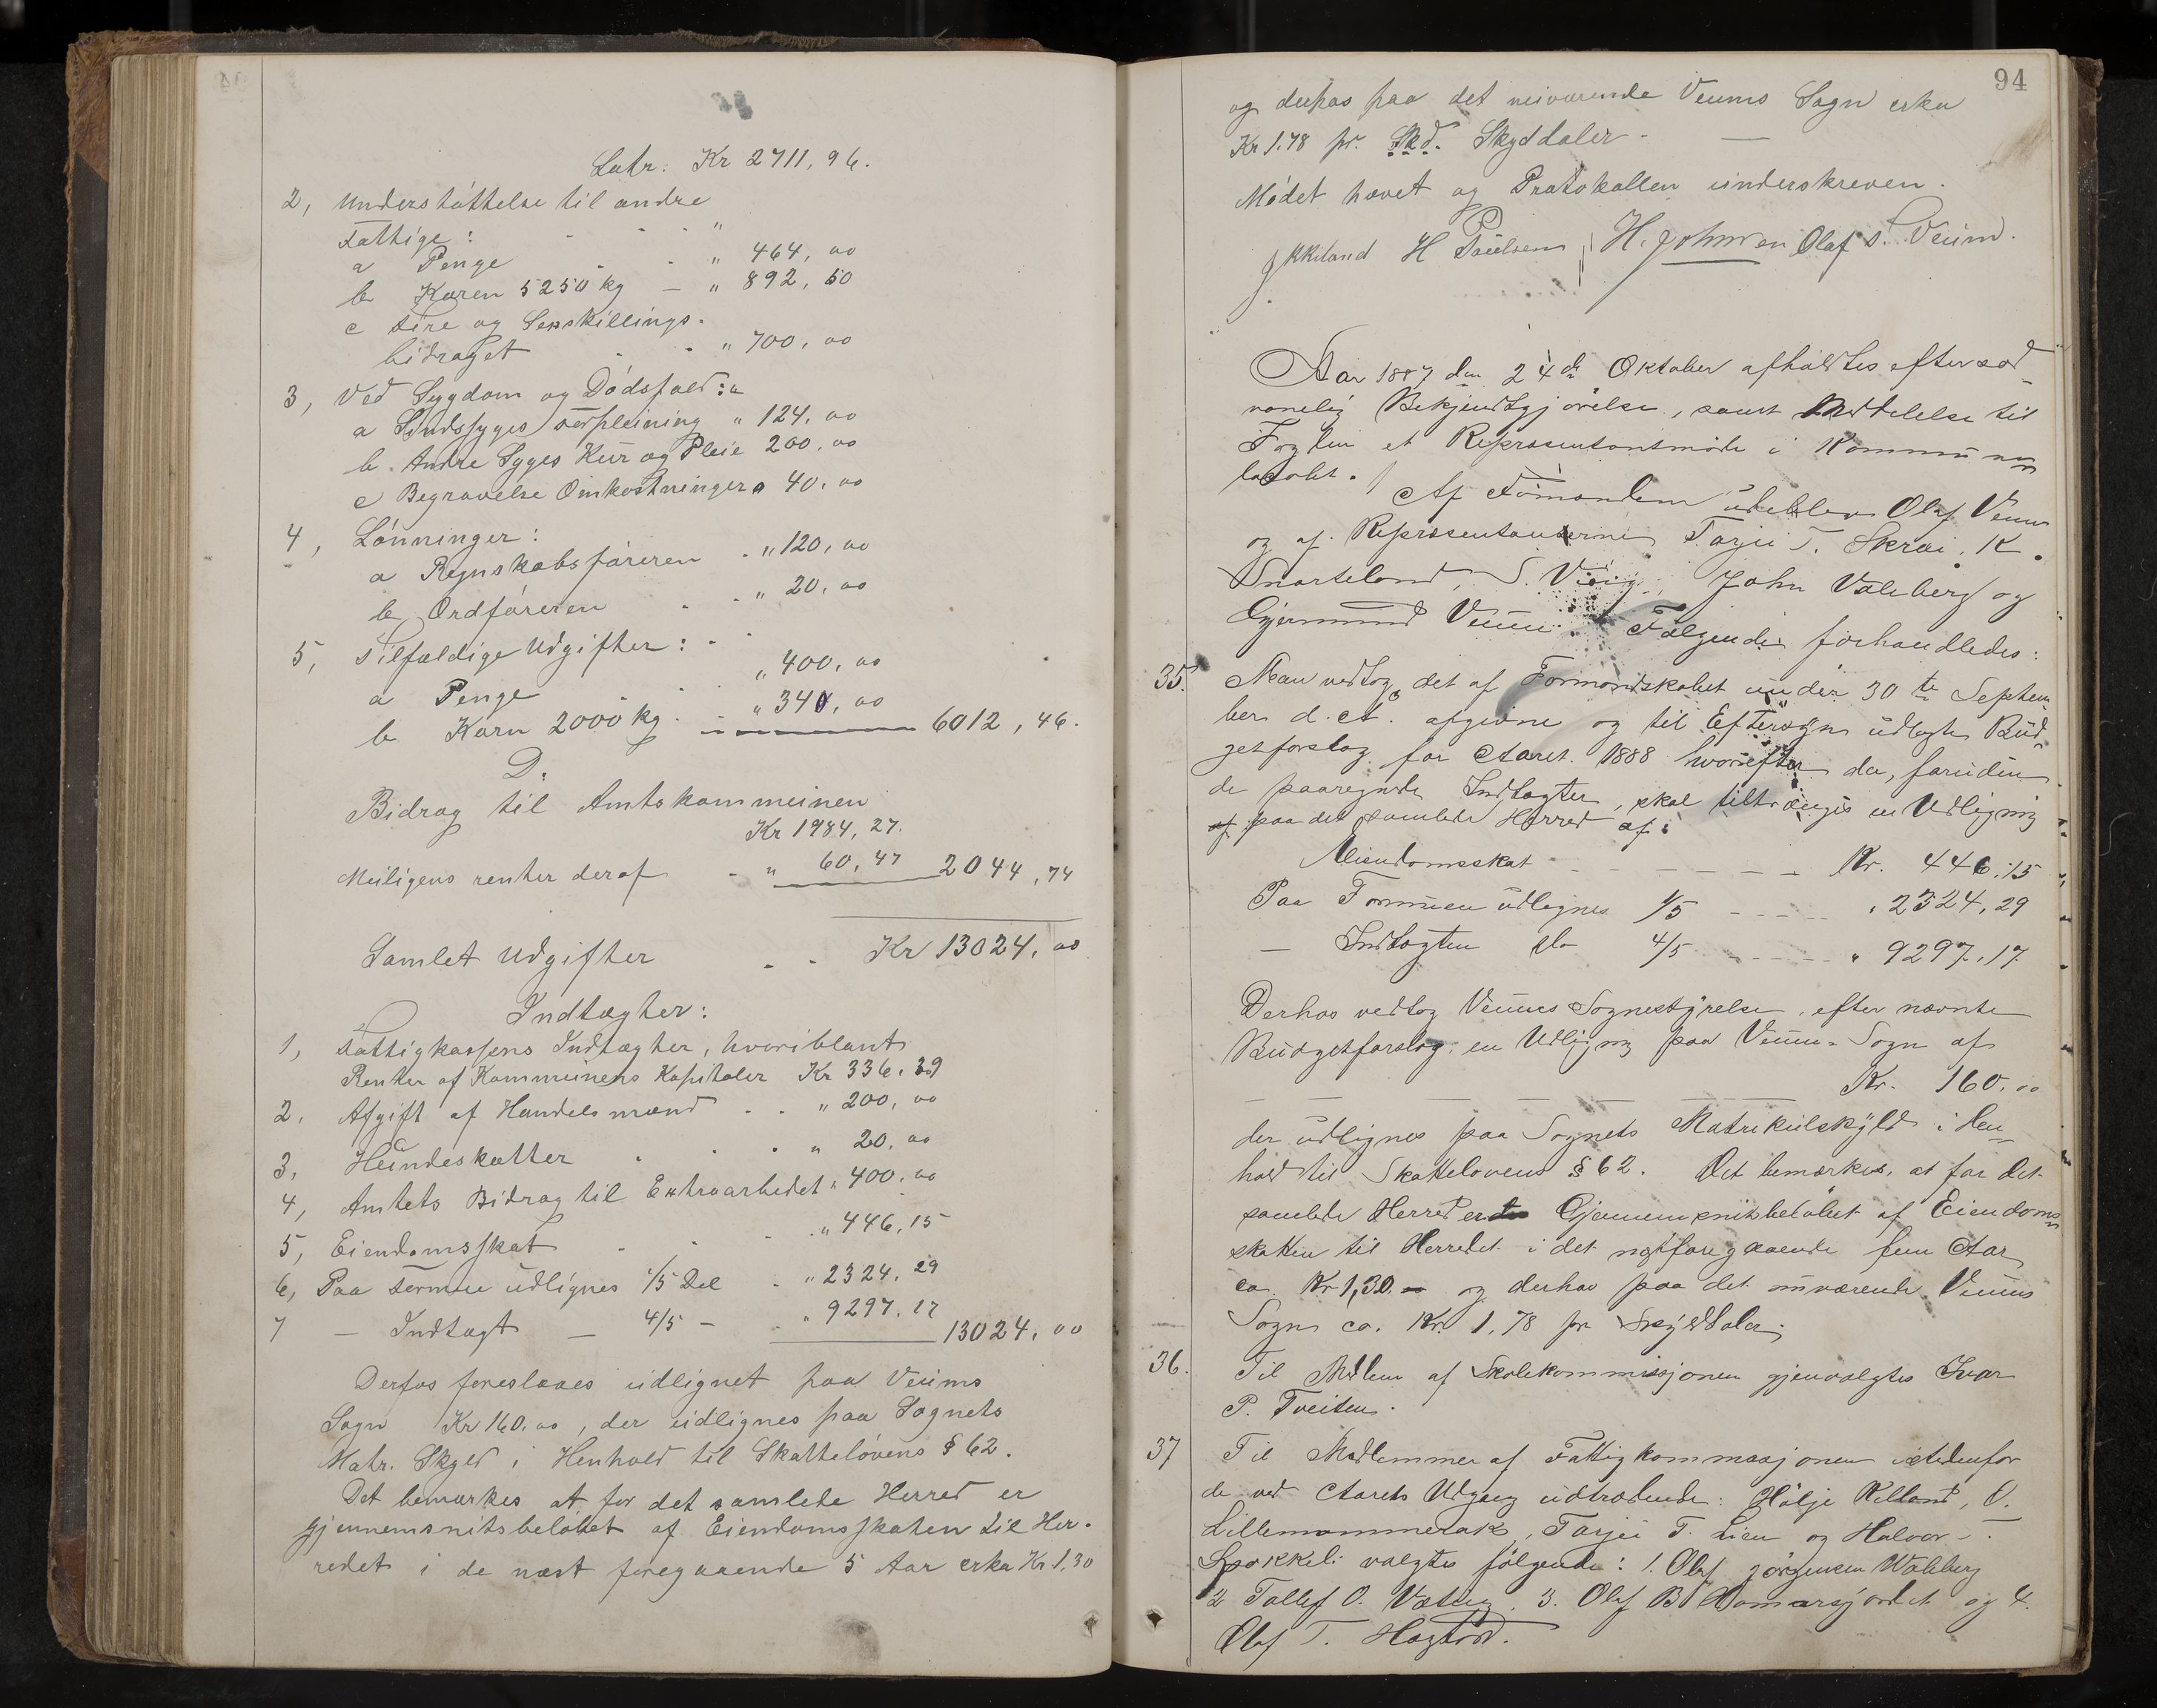 Latr. Kr 2711,96.
2, Understøttelse til andre
Fattige:
a Penge " 464,00
b Koren 5250 kg — " 892,50
c Fire og Sexskillings-
bidraget " 700,00
3, Ved Sygdom og Dødsfald:
a Sindssyges Forpleining " 124,00
b. Andre Syges Kur og Pleie 200,00
c Begravelse Omkostninger 40,00
4, Lønninger:
a Regnskabsføreren " 120,00
b Ordføreren " 20,00
5, Tilfældige Udgifter:
a Penge " 400,00
b Korn 2000 kg. " 340,00 6012,46.
D.
Bidrag til Amtskommunen
Kr 1984,27.
Meiligens renter deraf " 60,47 2044,74
Samlet Udgifter Kr 13024,00
Indtægter:
1, Fattigkassens Indtægter, hvoriblant
Renter af Kommunens Kapitaler Kr 336,39
2. Afgift af Handelsmænd " 200,00
3, Hundeskatter " 20,00
4, Amtets Bidrag til Extraarbeidet " 400,00
5, Eiendomsskat " 446,15
6, Paa Formue udlignes 1/5 Del " 2324,29
7 — Indtægt — 4/5 — " 9297,17 13024,00
Derhos foreslaaes udlignet paa Veums
Sogn Kr 160,00, der udlignes paa Sognets
Matr. Skyld i Henhold til Skattelovens § 62.
Det bemærkes at for det samlede Herred er
gjennemsnitsbeløbet af Eiendomsskaten til Her-
redet i de næst foregaaende 5 Aar cirka Kr 1.30
94
og derhos paa det nuværende Veums Sogn cirka
Kr 1.78 pr. Skd. Skyddaler —
Mødet hævet og Protokollen underskreven.
H Paulsen H. Johnsen Olaf S. Veum.
Aar 1887 den 24de Oktober afholdtes efter sæd-
vanelig Bekjendtgjørelse, samt Meddelelse til
Fogden et Repræsentantmøde i Kommune-
lokalet. Af Formændene udeblev Olaf Veum
og af Repræsentanterne Tarjei T. Skrei, K.
Snarteland, S. Viig, John Valeberg og
Gjermund Veum. Følgende forhandledes:
35. Man vedtog det af Formandskabet under 30te Septem-
ber d. A. afgivne og til Eftersyn udlagte Bud-
getforslag for Aaret 1888 hvorefter da, foruden
de paaregnede Indtægter, skal tiltrænges en Udligning
af paa det samlede Herred af:
Eiendomsskat — Kr. 446,15
Paa Formuen udlignes 1/5 " 2324,29
— Indtægten do 4/5 " 9297,17
Derhos vedtog Veums Sognestyrelse, efter nævnte
Budgetforslag en Udligning paa Veum-Sogn af
Kr. 160.00
der udlignes paa Sognets Matrikulskyld i Hen-
hold til Skattelovens § 62. Det bemærkes, at for det
samlede Herred er Gjennemsnitsbeløbet af Eiendoms-
skatten til Herredet i det næstforegaaende fem Aar
ca. Kr 1,30 og derhos paa det nuværende Veums
Sogn ca. Kr. 1,78 pr Skylddaler.
36. Til Medlem af Skolekommissjonen gjenvalgtes Ivar
P. Tveiten.
37 Til Medlemmer af Fattigkommissjonen istedenfor
de ved Aarets Udgang udtrædende: Hølje Killand, O.
Lillemommerak, Tarjei T. Lien og Halvor T.
Spokkeli valgtes følgende: 1. Olaf Jørgensen Waleberg
2 Tallef O. Vøting. 3. Olaf B og 4.
Olaf T. Hægtvd.